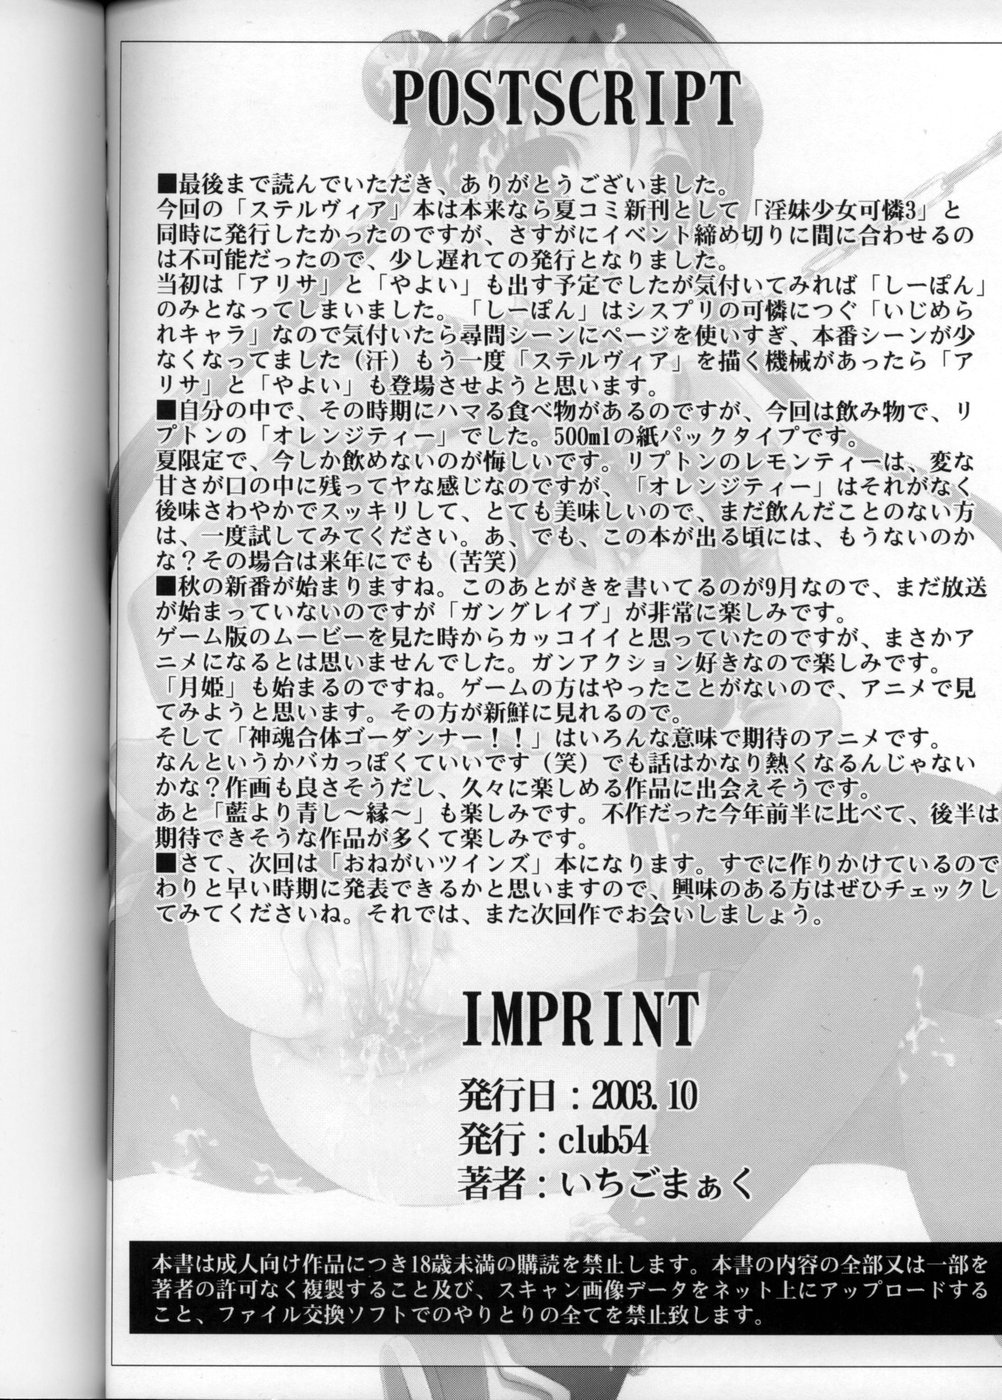 POSTSCRIPT
■最後まで読んでいただき、ありがとうございました。
今回の「ステルヴィア」本は本来なら夏コミ新刊として「淫妹少女可憐3」と
同時に発行したかったのですが、さすがにイベント締め切りに間に合わせるの
は不可能だったので、少し遅れての発行となりました。
当初は「アリサ」と「やよい」も出す予定でしたが気付いてみれば「しーぽん」
のみとなってしまいました。「しーぽん」はシスプリの可憐につぐ「いじめら
れキャラ」なので気付いたら尋問シーンにページを使いすぎ、本番シーンが少
なくなってました（汗）もう一度「ステルヴィア」を描く機械があったら「ア
リサ」と「やよい」も登場させようと思います。
■自分の中で、その時期にハマる食べ物があるのですが、今回は飲み物で、リ
プトンの「オレンジティー」でした。500mlの紙パックタイプです。
夏限定で、今しか飲めないのが悔しいです。リプトンのレモンティーは、変な
甘さが口の中に残ってヤな感じなのですが、「オレンジティー」はそれがなく
後味さわやかでスッキリして、とても美味しいので、まだ飲んだことのない方
は、一度試してみてください。あ、でも、この本が出る頃には、もうないのか
な？その場合は来年にでも（苦笑）
■秋の新番が始まりますね。このあとがきを書いてるのが9月なので、まだ放送
が始まっていないのですが「ガングレイブ」が非常に楽しみです。
ゲーム版のムービーを見た時からカッコイイと思っていたのですが、まさかア
ニメになるとは思いませんでした。ガンアクション好きなので楽しみです。
「月姫」も始まるのですね。ゲームの方はやったことがないので、アニメで見
てみようと思います。その方が新鮮に見れるので。
そして「神魂合体ゴーダンナー！！」はいろんな意味で期待のアニメです。
なんというかバカっぽくていいです（笑）でも話はかなり熱くなるんじゃない
かな？作画も良さそうだし、久々に楽しめる作品に出会えそうです。
あと「藍より青し～縁～」も楽しみです。不作だった今年前半に比べて、後半は
期待できそうな作品が多くて楽しみです。
■さて、次回は「おねがいツインズ」本になります。すでに作りかけているので
わりと早い時期に発表できるかと思いますので、興味のある方はぜひチェックし
てみてくださいね。それでは、また次回作でお会いしましょう。
IMPRINT
発行日：2003.10
発行：club54
著者：いちごまぁく
本書は成人向け作品につき18歳未満の購読を禁止します。本書の内容の全部又は一部を
著者の許可なく複製すること及び、スキャン画像データをネット上にアップロードする
こと、ファイル交換ソフトでのやりとりの全てを禁止致します。